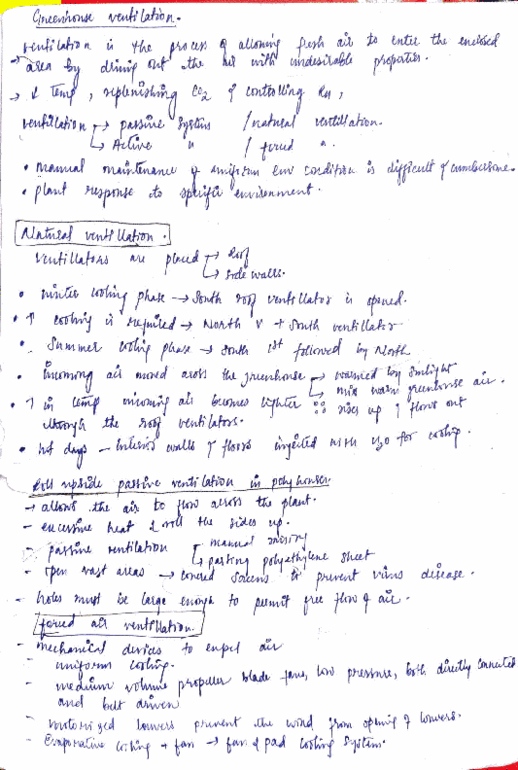 Greenhouse ventilation.
ventilation is the process of allowing fresh air to enter the enclosed
→ area by driving out the air with undesirable properties.
→ ↓ Temp, replenishing CO2 & controlling RH,
ventilation → passive system / natural ventillation.
→ Active " / forced ".
• manual maintenance of uniform env condition is difficult & cumbersome.
• plant response to specific environment.
Natural ventillation.
ventillators are placed → Roof
→ side walls.
• winter cooling phase → South roof ventillator is opened.
• ↑ cooling is required → North V + South ventillator
• Summer cooling phase → South 1st followed by North
• incoming air moved across the greenhouse → warmed by sunlight
→ mix warm greenhouse air.
• ↑ in temp incoming air becomes lighter ∴ rises up & flows out
through the roof ventilators.
• hot days - interior walls & floors injected with H2O for cooling.
Roll upside passive ventilation in polyhouses.
→ allows the air to flow across the plant.
- excessive heat & roll the sides up.
- passive ventilation → manual
→ parting polyethylene sheet
- open vast areas → covered screens to prevent virus disease.
- holes must be large enough to permit free flow of air.
forced air ventillation.
- mechanical devices to expel air
- uniform cooling.
- medium volume propeller blade fans, low pressure, both directly connected
and belt driven
- motorized louvers prevent the wind from opening of louvers.
- Evaporative cooling + fan → fan & pad cooling system.